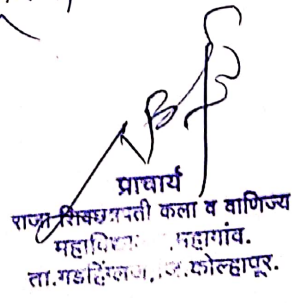 प्राचार्य
राजा शिवछत्रपती कला व वाणिज्य
महागांव.
ता.गडहिंग्लज, जि.कोल्हापूर.